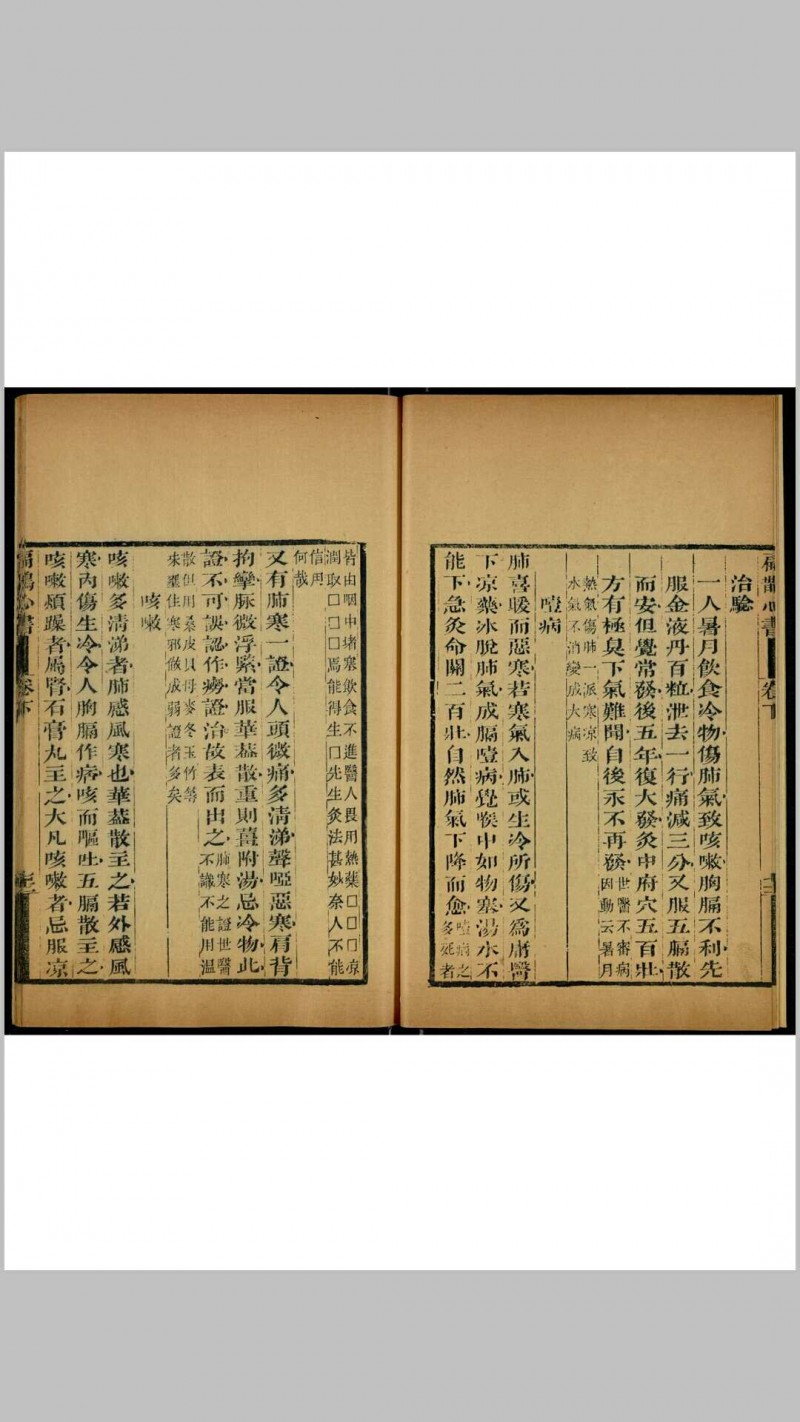 扁鵲心書 卷下
治驗
一人暑月飲食冷物傷肺氣致咳嗽胸膈不利先
服金液丹百粒泄去一行痛減三分又服五膈散
而安但覺常發後五年復大發灸中府穴五百壯
方有極臭下氣難聞自後永不再發世醫不審病
因動云暑月
熱氣傷肺一派寒凉致
水氣不消變成大病
噎病
肺喜暖而惡寒若寒氣入肺或生冷所傷又爲庸醫
下凉藥冰脫肺氣成膈噎病覺喉中如物塞湯水不
能下急灸命關二百壯自然肺氣下降而愈噎病之
多死者
皆由咽中堵塞飲食不進醫人畏用熱藥□□□凉
潤取□□□焉能得生□先生灸法甚妙奈人不能
信用
何哉
又有肺寒一證令人頭微痛多清涕聲啞惡寒肩背
拘攣脈微浮緊當服華葢散重則薑附湯忌冷物此
證不可誤認作癆證治故表而出之肺寒之證世醫
不識不能用溫
散但用桑皮貝母麥冬玉竹等
味羅住寒邪做成弱證者多矣
咳嗽
咳嗽多清涕者肺感風寒也華葢散主之若外感風
寒內傷生冷令人胸膈作病咳而嘔吐五膈散主之
咳嗽煩躁者屬腎石膏丸主之大凡咳嗽者忌服凉
扁鵲心書 卷下